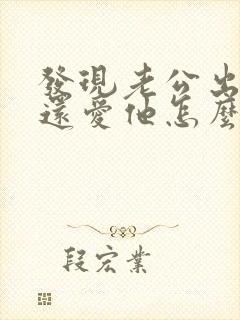 發現老公出
還愛他怎麼
段宏業